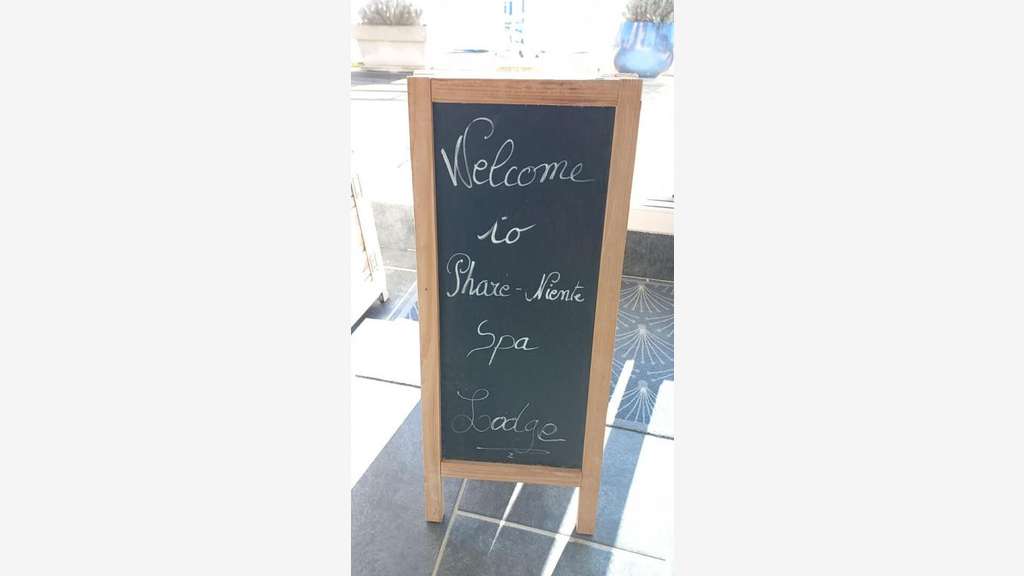 Welcome
to
Phare-Niente
Spa
Lodge